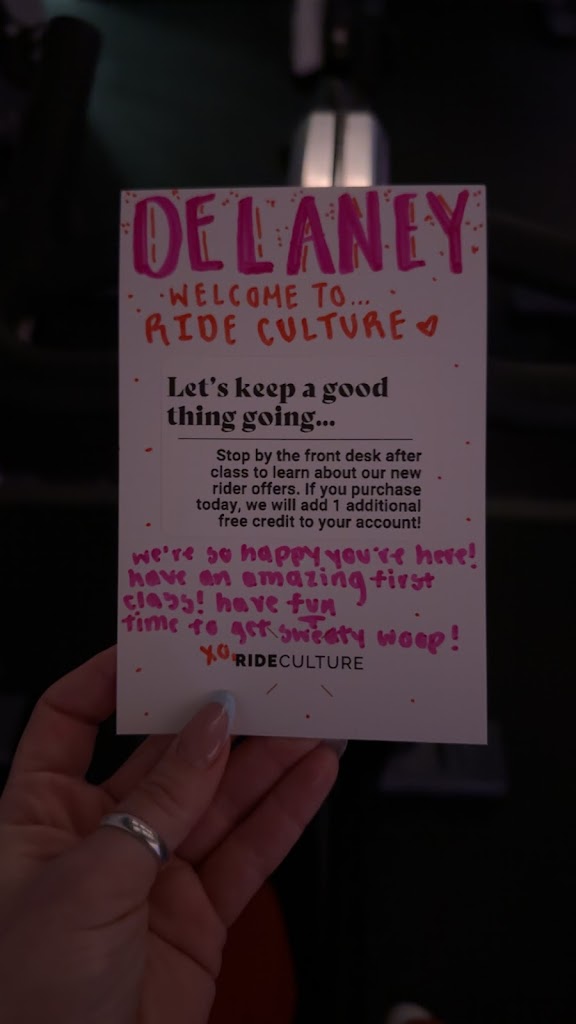 DELANEY
WELCOME TO...
RIDE CULTURE
Let's keep a good
thing going...
Stop by the front desk after
class to learn about our new
rider offers. If you purchase
today, we will add 1 additional
free credit to your account!
we're so happy you're here!
have an amazing first
class! have fun
time to get sweaty woop!
xo, RIDECULTURE